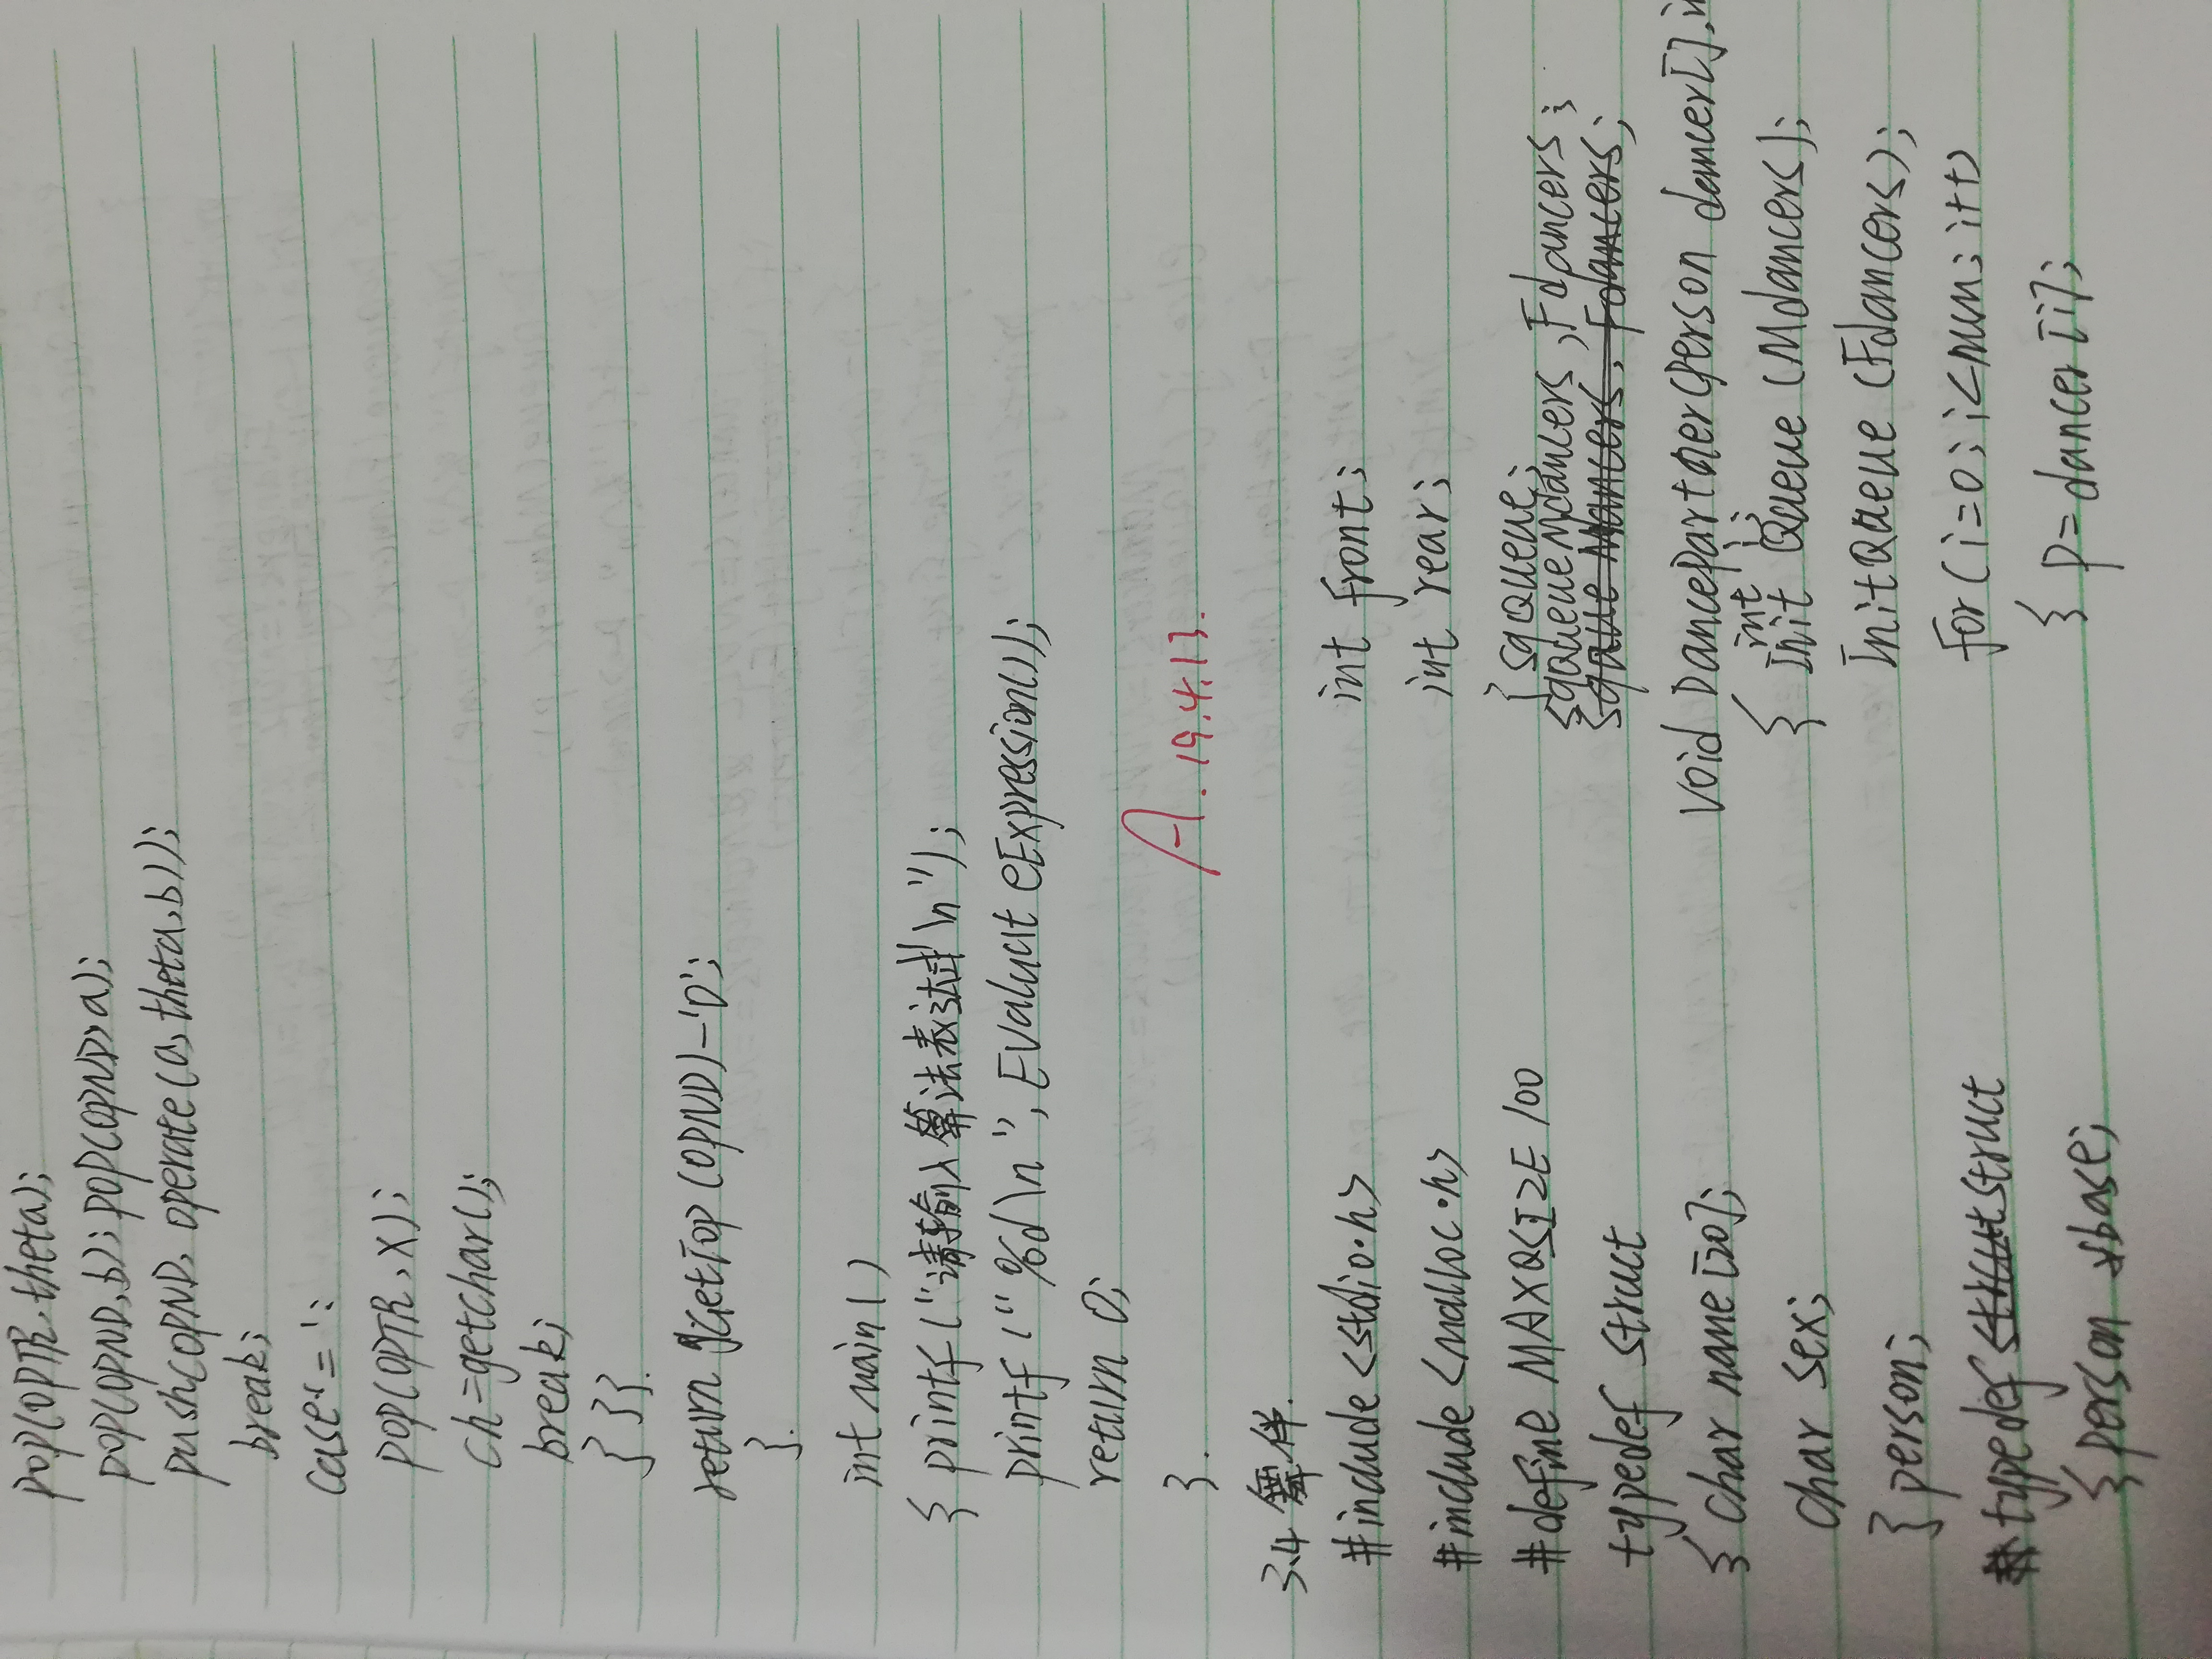 pop(OPTR,theta);
pop(OPND,b); pop(OPND,a);
push(OPND, operate(a,theta,b));
break;
case '=':
pop(OPTR,X);
ch=getchar();
break;
} } }.
return GetTop(OPND)-'0';
}.
int main()
{ printf("请输入算法表达式\n");
printf("%d\n", EvaluateExpression());
return 0;
}.
A. 19.4.17.
3.4 舞伴.
#include <stdio.h>
#include <malloc.h>
#define MAXQSIZE 100
typedef struct
{ char name[20];
char sex;
} person;
typedef struct
{ person *base;
int front;
int rear;
} SqQueue;
SqQueue Mdancers, Fdancers;
void DancePartner(person dancer[],
int i;
{ InitQueue (Mdancers);
InitQueue (Fdancers);
for(i=0; i<num; i++)
{ p=dancer[i];